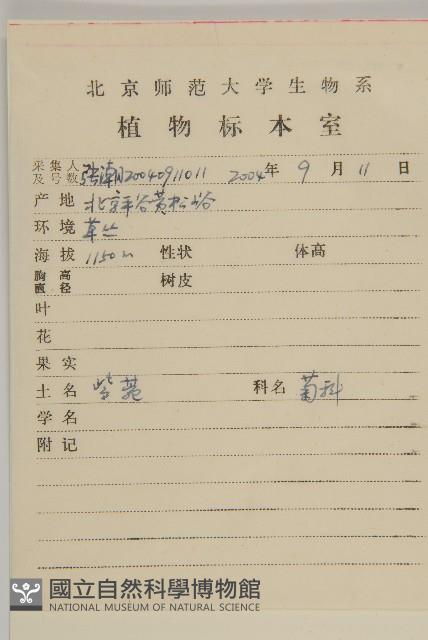 北京师范大学生物系
植物标本室
采集人及号数 张潮200409111011 2004年 9 月 11 日
产地 北京平谷黄松峪
环境 草丛
海拔 1150m 性状 体高
胸高直径 树皮
叶
花
果实
土名 紫菀 科名 菊科
学名
附记
國立自然科學博物館
NATIONAL MUSEUM OF NATURAL SCIENCE